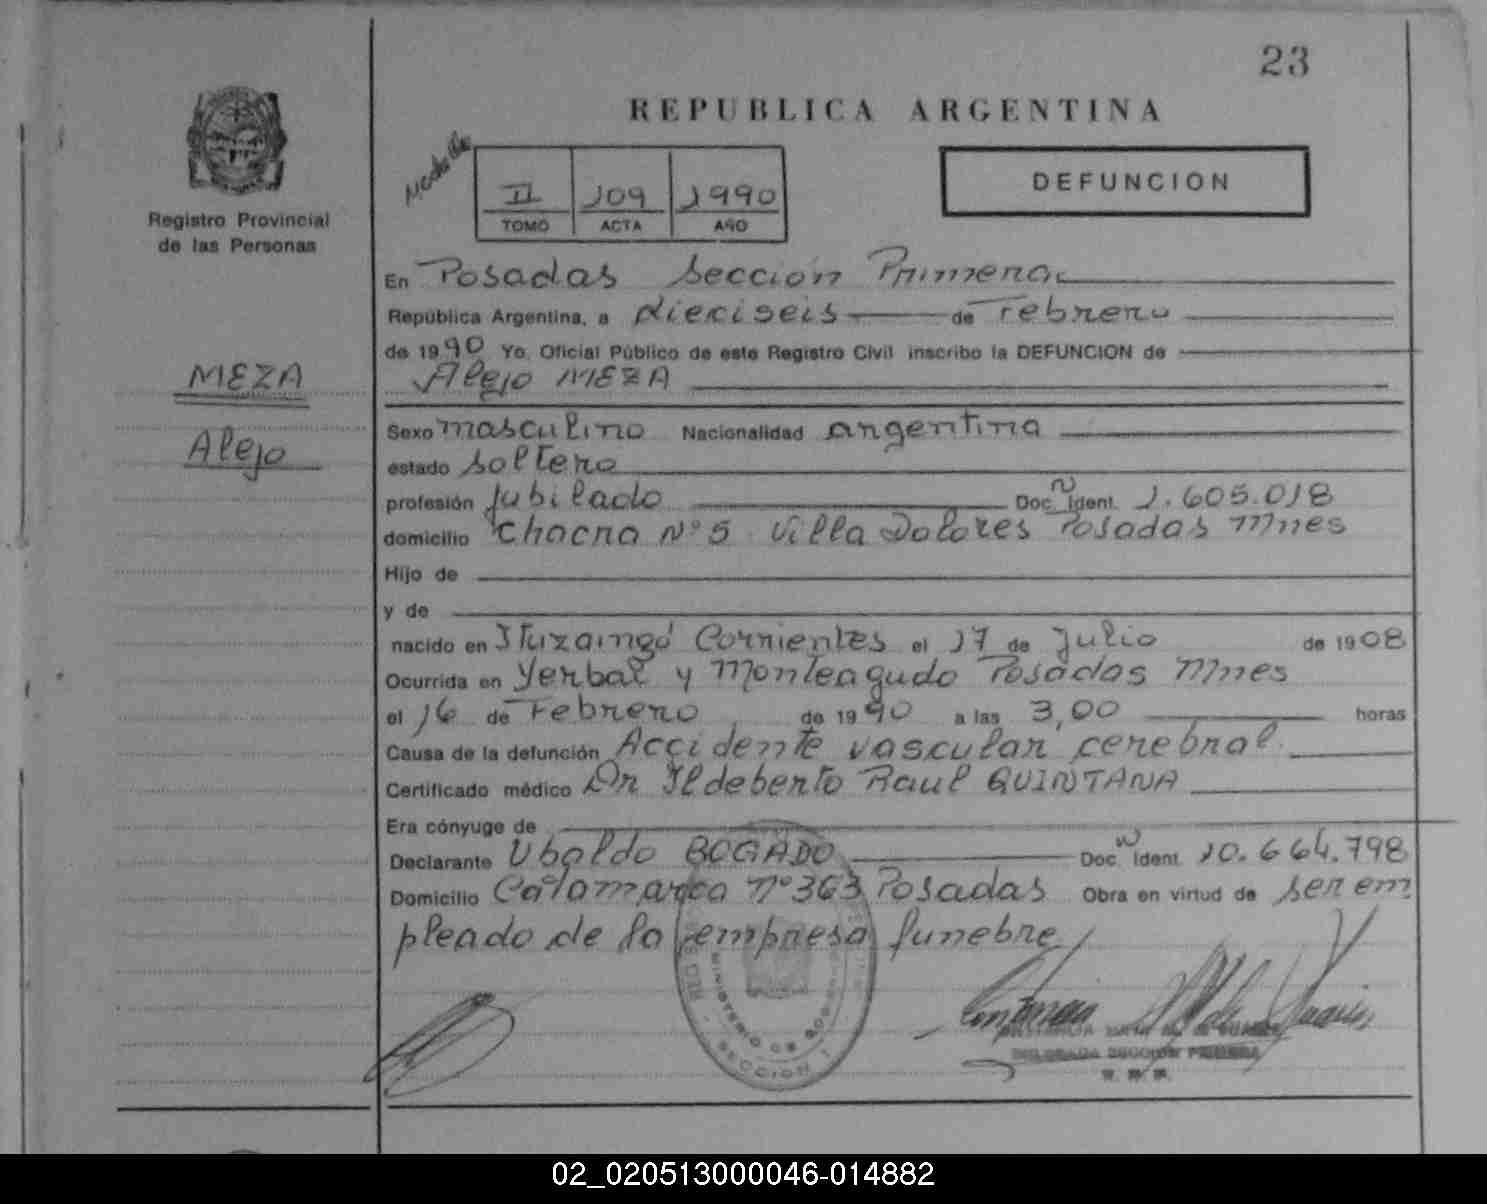 23
REPUBLICA ARGENTINA
Registro Provincial
de las Personas
II 109 1990
TOMO ACTA AÑO
DEFUNCION
En Posadas Sección Primera
República Argentina, a dieciseis de Febrero
de 1990 Yo, Oficial Público de este Registro Civil inscribo la DEFUNCION de
Alejo MEZA
MEZA
Alejo
Sexo masculino Nacionalidad argentina
estado soltero
profesión jubilado Doc. Ident. 1.605.018
domicilio Chacra Nº 5 Villa Dolores Posadas Mnes
Hijo de
y de
nacido en Ituzaingó Corrientes el 17 de Julio de 1908
Ocurrida en Yerbal y Monteagudo Posadas Mnes
el 16 de Febrero de 1990 a las 3,00 horas
Causa de la defunción Accidente vascular cerebral
Certificado médico Dr Ildeberto Raul QUINTANA
Era cónyuge de
Declarante Ubaldo BOGADO Doc. Ident. 10.664.798
Domicilio Catamarca nº 363 Posadas Obra en virtud de ser em
pleado de la empresa funebre
MINISTERIO DE
SECCION 1
DELEGADA SECCION PRIMERA
02_020513000046-014882